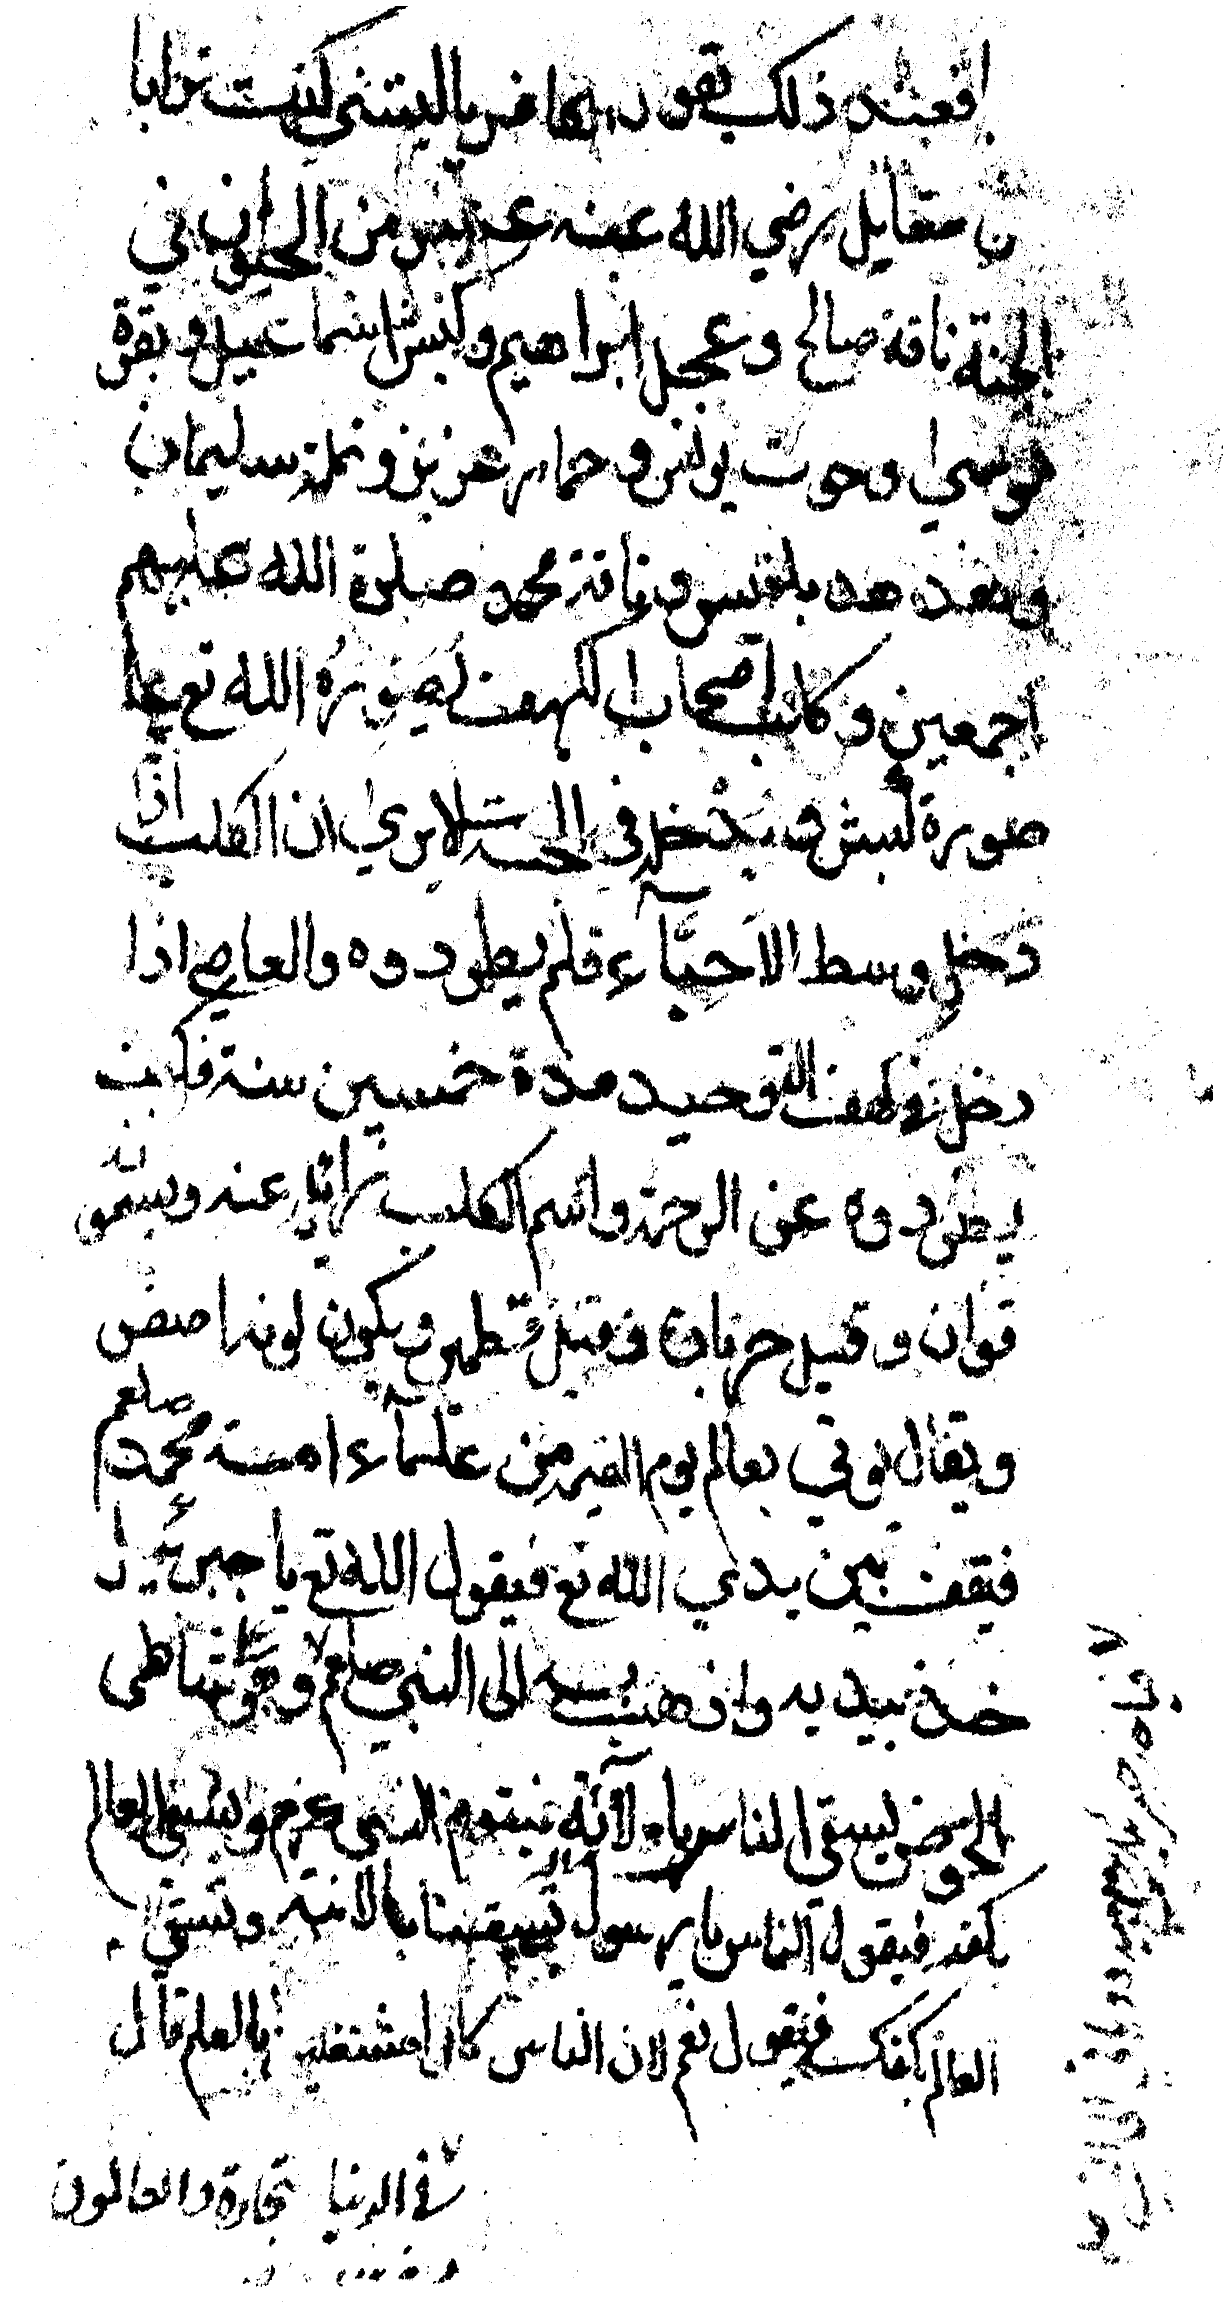 فعند ذلك يقول الكافر ياليتني كنت ترابا
قال مقاتل رضي الله عنه عشر من الحيوان في
الجنة ناقة صالح وعجل ابراهيم وكبش اسماعيل وبقرة
موسى وحوت يونس وحمار عزيز ونملة سليمان
وهدهد بلقيس وناقة محمد صلوة الله عليهم
اجمعين وكلب اصحاب الكهف يصوره الله تع على
صورة كبش ويدخل في الجنة الا يرى ان الكلب اذا
دخل وسط الاحبآء فلم يطردوه والعاصي اذا
دخل في كهف التوحيد مدة خمسين سنة فكيف
يطردوه عن الرحمة واسم الكلب عنه ويسمونه
قوان وقيل حرنان وقيل قطمير ويكون لونه اصفر
ويقال يوتي بعالم يوم القيمة من علمآء امة محمد صلعم
فيقف بين يدي الله تع فيقول الله تع يا جبرئيل
خذ بيديه واذهب به الى النبي صلعم وهو على شاطى
الحوض يسقي الناس بالآنية فيقوم النبي ويسقي العالم
بكفه فيقول الناس يا رسول الله تسقينا بالانية وتسقي
العالم بكفك فيقول نعم لان الناس كانوا مشتغلين قال
في الدنيا تجارة والعالمون